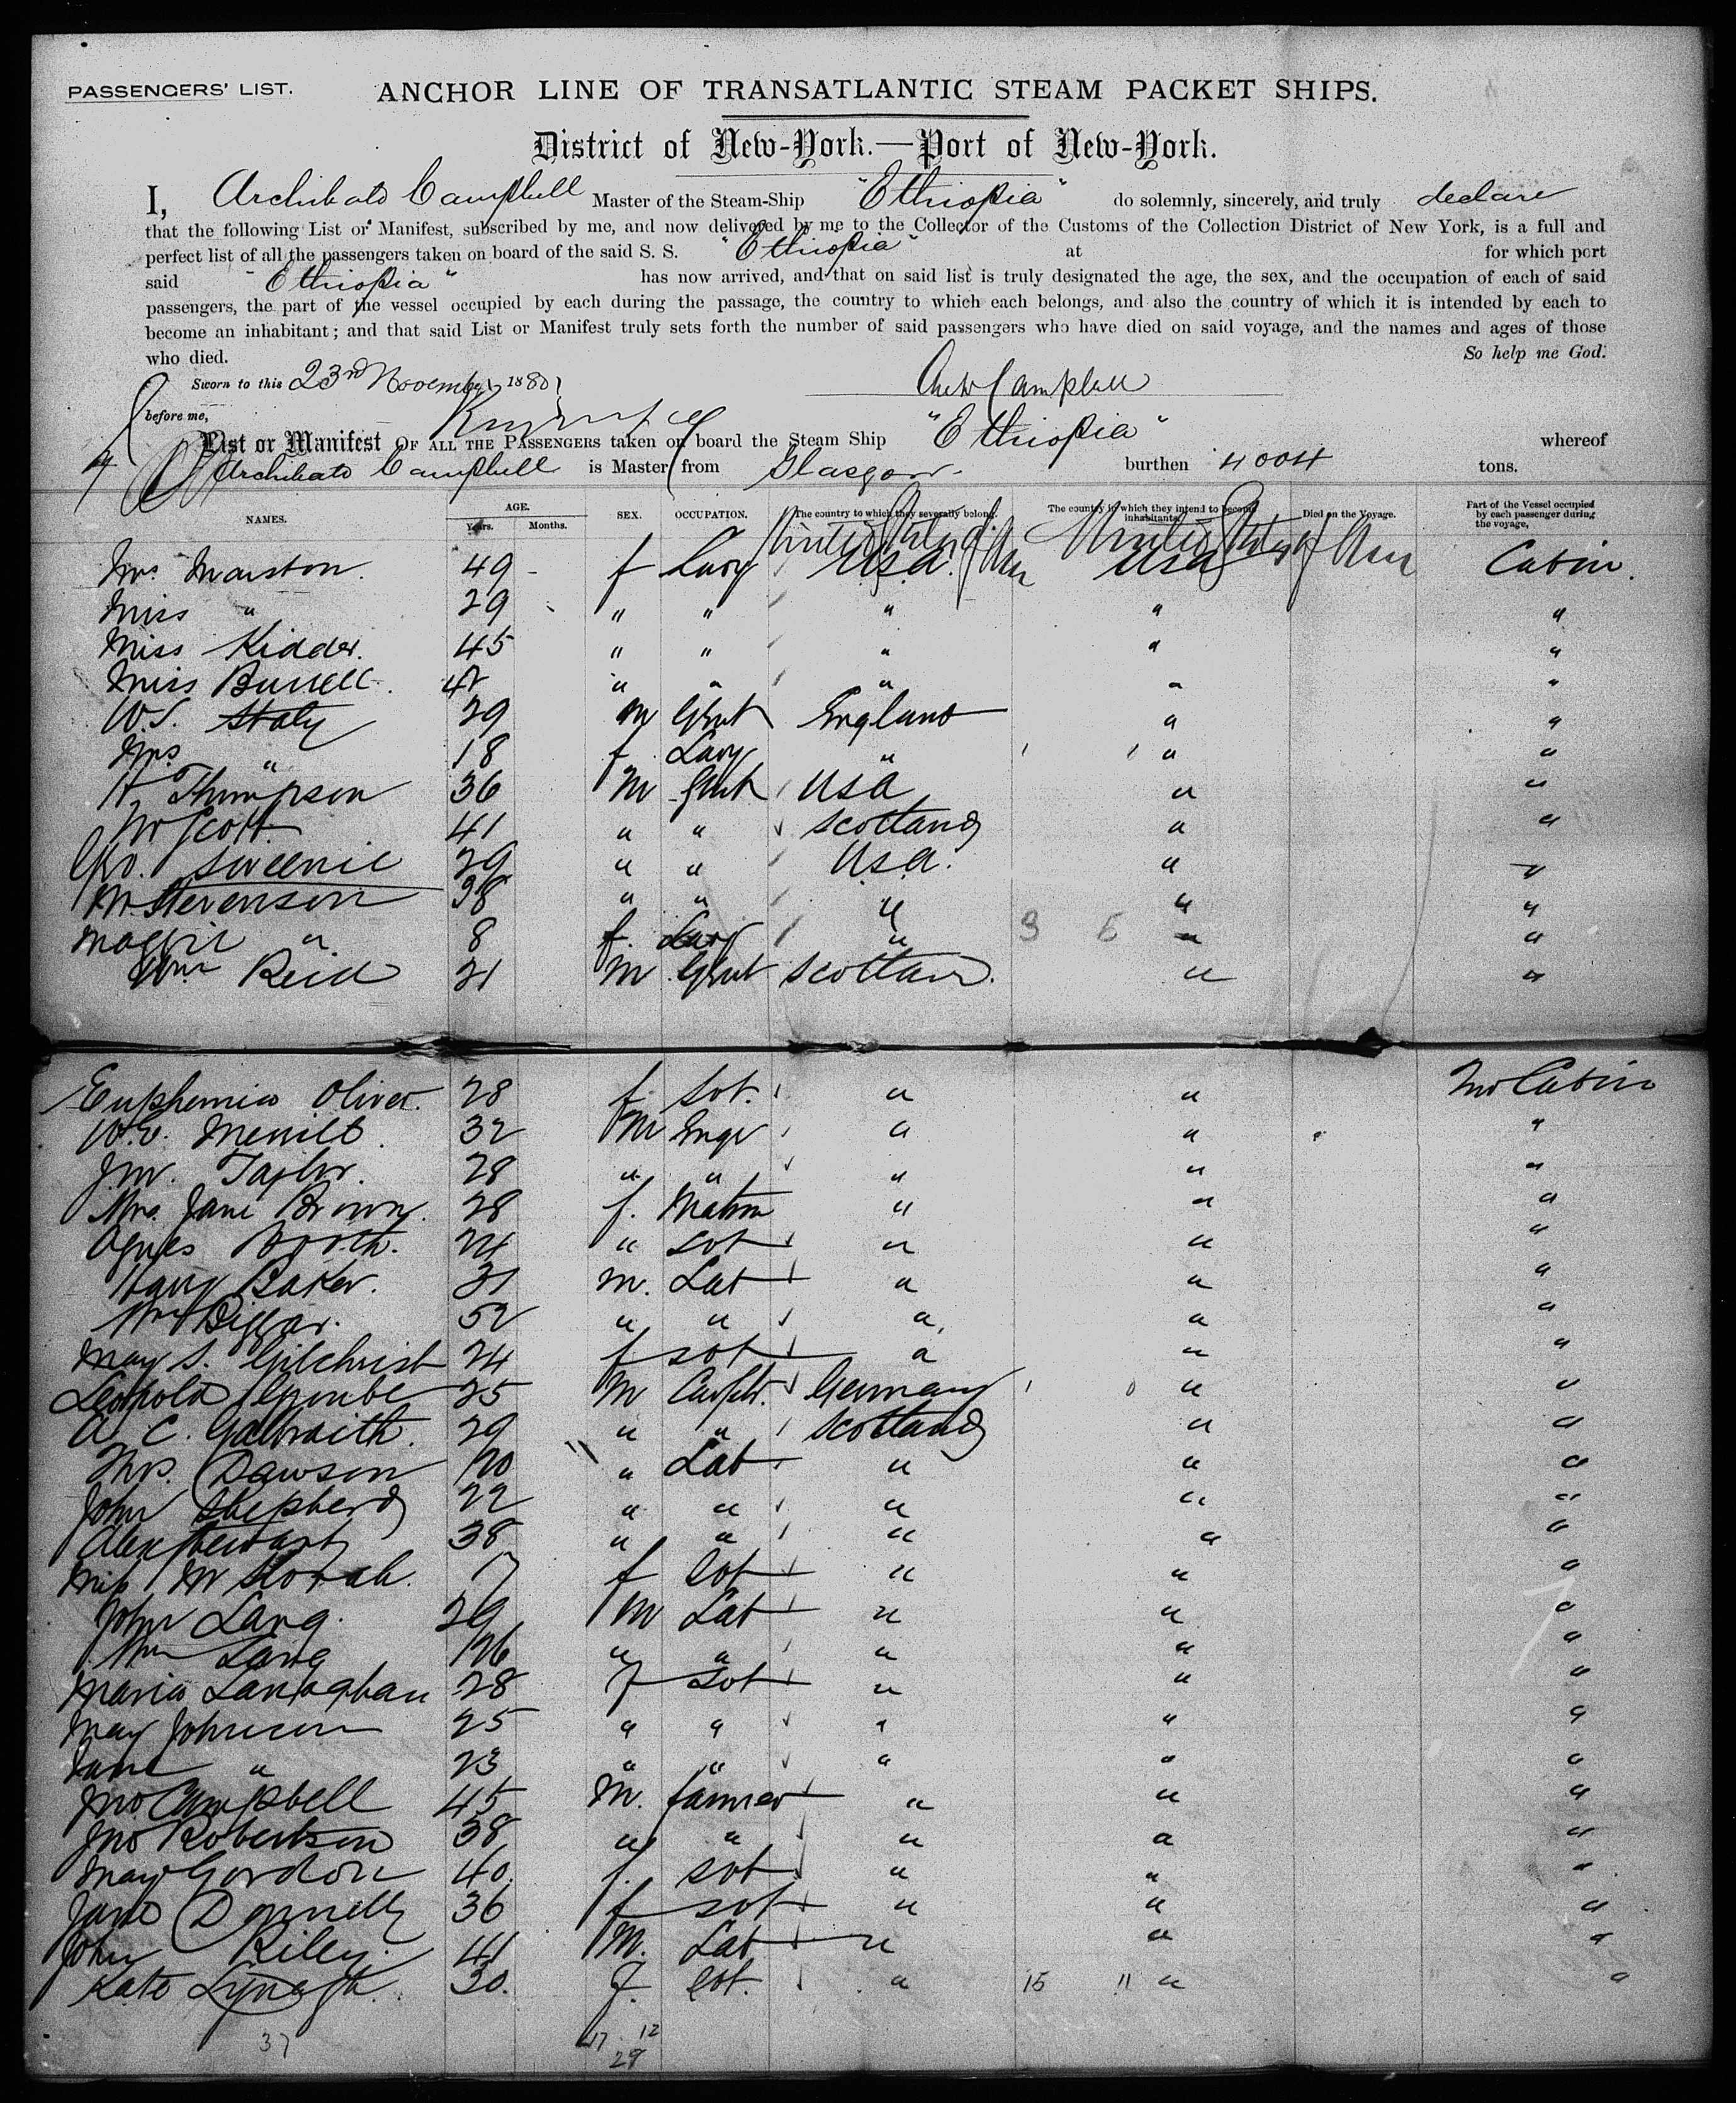 PASSENGERS' LIST.
ANCHOR LINE OF TRANSATLANTIC STEAM PACKET SHIPS.
District of New-York.—Port of New-York.
I, Archibald Campbell Master of the Steam-Ship "Ethiopia" do solemnly, sincerely, and truly declare
that the following List or Manifest, subscribed by me, and now delivered by me to the Collector of the Customs of the Collection District of New York, is a full and
perfect list of all the passengers taken on board of the said S. S. "Ethiopia" at for which port
said "Ethiopia" has now arrived, and that on said list is truly designated the age, the sex, and the occupation of each of said
passengers, the part of the vessel occupied by each during the passage, the country to which each belongs, and also the country of which it is intended by each to
become an inhabitant; and that said List or Manifest truly sets forth the number of said passengers who have died on said voyage, and the names and ages of those
who died. So help me God.
Sworn to this 23rd November 1880 Campbell
before me,
List or Manifest OF ALL THE PASSENGERS taken on board the Steam Ship "Ethiopia" whereof
Archibald Campbell is Master from Glasgow burthen 4004 tons.
NAMES. AGE. Years. Months. SEX. OCCUPATION. The country to which they severally belong. The country to which they intend to become inhabitants. Died on the Voyage. Part of the Vessel occupied by each passenger during the voyage.
United States of Am United States of Am
Mrs Marston. 49 - f Lady USA. USA Cabin.
Miss " 29 " " " " "
Miss Kidder. 45 " " " " "
Miss Burrell. " " " " "
W.S. Staly 29 M Gent England " "
Mrs " 18 f Lady " " "
H Thompson 36 M Gent USA " "
Scott. 41 " " Scotland " "
Geo. Sweenie 29 " " U.S.A. " "
M. Stevenson 38 " " " " "
Maggie " 8 f. Lady " 3 " "
Wm Reid 21 M Gent Scotland. " "
Euphemia Oliver. 28 f Spt. " " Int Cabin
W.E. Merrilt. 32 M Engr " " "
J.M. Taylor. 28 " " " " "
Mrs. Jane Brown. 28 f. Matron " " "
Agnes Booth. 24 " Spt " " "
Harry Baker. 31 M. Lab " " "
Wm Biggar. 52 " " " " "
May S. Gilchrist 24 f spt " " "
Leopold 25 M Carptr. Germany " "
A. C. Galbraith. 29 " " Scotland " "
Dawson 20 " Lab " " "
John Shepherd 22 " " " " "
Alex Stewart 38 " " " " "
Miss f Spt " " "
John Lang. 29 M Lab " " "
Wm Lang 26 " " " " "
Maria Lanaghan 28 f Spt " " "
May Johnson 25 " " " " "
Jane " 23 " " " " "
Jno Campbell 45 M. farmer " " "
Jno Robertson 38 " " " " "
May Gordon 40. f. spt " " "
Jane Donnelly 36 f spt " " "
John Riley. 41 M. Lab " " "
Kate Lynagh. 30. f. spt. " 15 11 " "
37 17 12
29